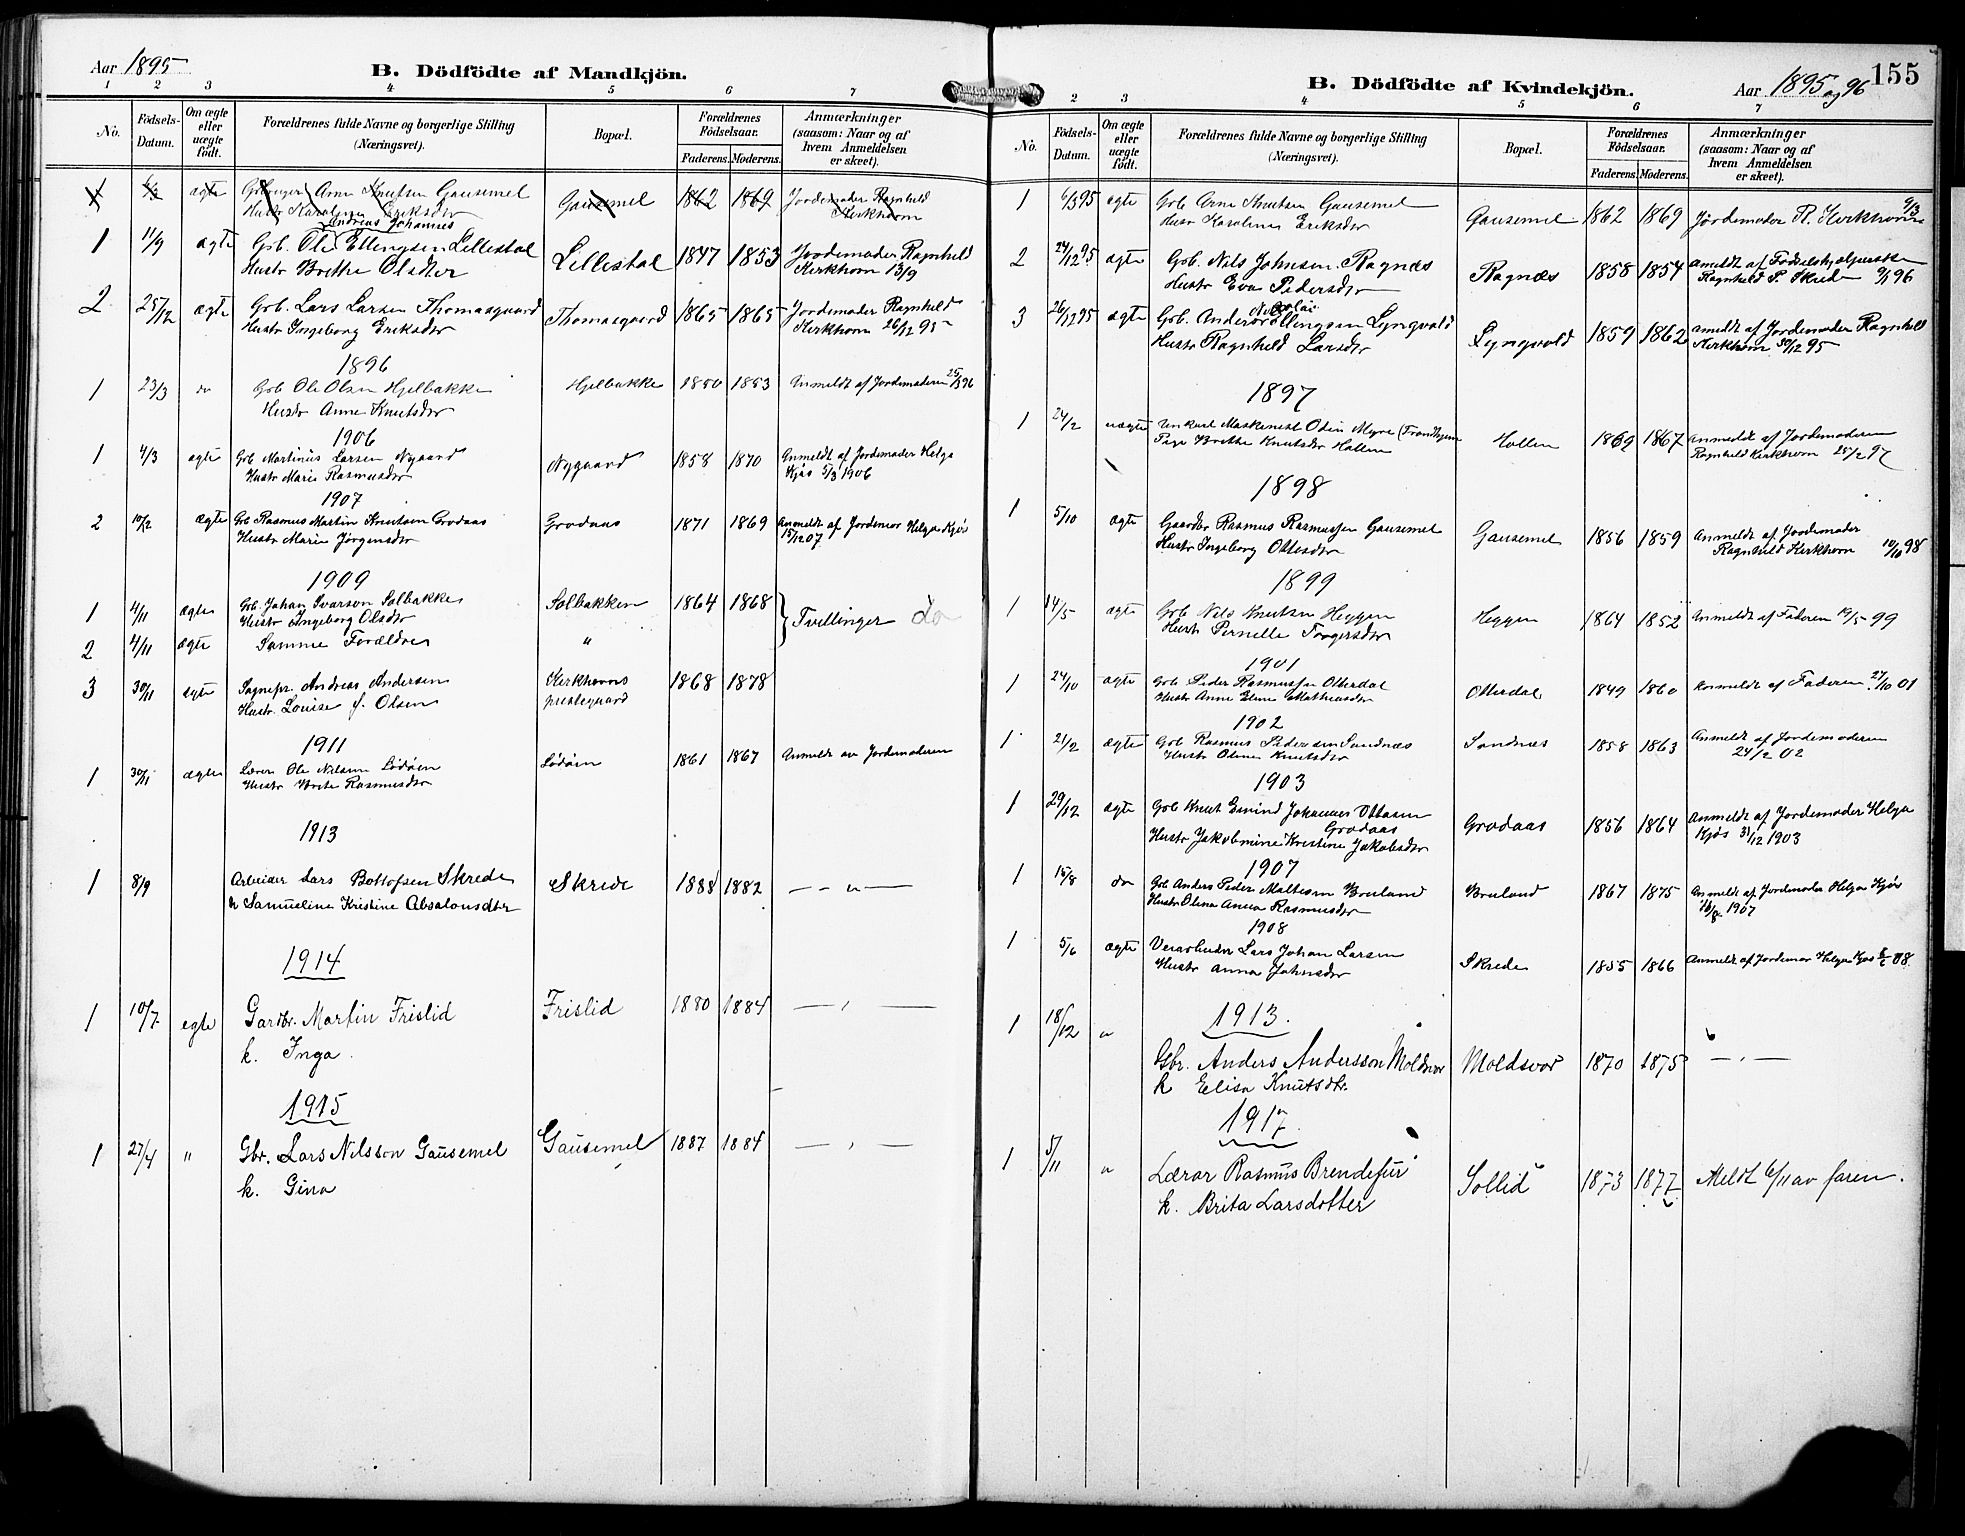 Aar 1895
B. Dödfödte af Mandkjön.
1 2 3 4 5 6 7
No.
Födsels-Datum.
Om ægte eller uægte födt.
Forældrenes fulde Navne og borgerlige Stilling (Næringsvei).
Bopæl.
Forældrenes Födselsaar.
Faderens. Moderens.
Anmærkninger (saasom: Naar og af hvem Anmeldelsen er skeet).
1 6/3 ægte Arne Knutsen Gausemel Gausemel 1862 1869 Jordemoder Ragnhild
Hustr Karoline Eriksdtr Kirkhorn
Andreas Johannes
1 11/9 ægte Grb. Ole Ellingsen Lillestøl Lillestøl 1847 1853 Jordemoder Ragnhild
Hustr Brethe Olsdter Kirkhorn 13/9
2 25/12 ægte Grb. Lars Larsen Thomasgaard Thomasgaard 1865 1865 Jordemoder Ragnhild
Hustr Ingeborg Eriksdtr Kirkhorn 26/12 95
1896
1 23/3 do Grb Ole Olsen Hjelbakke Hjelbakke 1850 1853 Anmeldt af Jordemoderen 25/3 96
Hustr Anne Knutsdtr
1906
1 4/3 ægte Grb Martinus Larsen Nygaard Nygaard 1858 1870 Anmeldt af Jordemoder Helga
Hustr Marie Rasmusdtr Kjøs 5/3 1906
1907
2 10/2 ægte Grb Rasmus Martin Knutsen Grodaas Grodaas 1871 1869 Anmeldt af Jordemor Helga Kjøs
Hustr Marie Jørgensdtr 15/12 07
1909
1 4/11 ægte Grb. Johan Ivarson Solbakken Solbakken 1864 1868 } Tvillinger do
Hustr Ingeborg Olsdtr
2 4/11 ægte Samme Forældre "
3 30/11 ægte Sognepr. Andreas Andersen Kirkhorns 1868 1878
Hustr. Louise f. Olsen prestegaard
1911
1 30/1 ægte Lærer Ole Nilsen Lødøen Lødøen 1861 1867 Anmeldt av Jordemoderen
Hustr Brite Rasmusdtr
1913
1 8/9 Arbeider Lars Bottofsen Skrede Skrede 1888 1882 — - " —
k Samueline Kristine Absalonsdter
1914
1 10/7 egte Gardbr. Martin Frislid Frislid 1880 1884 — , —
k. Inga
1915
1 27/4 " Gbr. Lars Nilsson Gausemel Gausemel 1887 1884 — , —
k. Gina
B. Dödfödte af Kvindekjön.
Aar 1895 og 96
155
2 3 4 5 6 7
No.
Födsels-Datum.
Om ægte eller uægte födt.
Forældrenes fulde Navne og borgerlige Stilling (Næringsvei).
Bopæl.
Forældrenes Födselsaar.
Faderens. Moderens.
Anmærkninger (saasom: Naar og af hvem Anmeldelsen er skeet).
1 6/3 95 ægte Grb Arne Knutsen Gausemel Gausemel 1862 1869 Jordemoder R. Kirkhorn 9/3
Hustr Karoline Eriksdtr
2 24/12 95 ægte Grb. Nils Johnsen Ragnæs Ragnæs 1858 1854 Anmeldt af
Hustr Eva Pedersdtr Ragnhild P. Skrede 9/1 96
Nikolai
3 26/12 95 ægte Grb. Anders Ellingsen Lyngvold Lyngvold 1859 1862 Anmeldt af Jordemoder Ragnhild
Hustr Ragnhild Larsdtr Kirkhorn 30/12 95
1897
1 24/2 uægte Unkarl Maskinist Odin Myre (Trondhjem Hollen 1869 1867 Anmeldt af Jordemoderen
Pige Brethe Knutsdtr Hollen Ragnhild Kirkhorn 25/2 97
1898
1 5/10 ægte Gaardbr Rasmus Rasmussen Gausemel Gausemel 1856 1859 Anmeldt af Jordemoder
Hustr Ingeborg Ottesdtr Ragnhild Kirkhorn 10/10 98
1899
1 14/5 ægte Grb Nils Knutsen Heggen Heggen 1864 1852 Anmeldt af Faderen 19/5 99
Hustr Pernelle Torgersdtr
1901
1 24/10 ægte Grb. Peder Rasmussen Otterdal Otterdal 1849 1860 Anmeldt af Faderen 27/10 01
Hustr Anne Eline Mathiasdtr
1902
1 21/2 ægte Grb Rasmus Pedersen Sandnæs Sandnæs 1858 1863 Anmeldt af Jordemoderen
Hustr Oline Knutsdtr 24/2 02
1903
1 29/12 ægte Grb Knut Eivind Johannes Ottesen Grodaas 1856 1864 Anmeldt af Jordemoder Helga
Grodaas Kjøs 31/12 1903
Hustr Jakobmine Kristine Jakobsdtr
1907
1 15/8 do Grb Anders Peder Maltesen Bruland Bruland 1867 1875 Anmeldt af Jordemoder Helga Kjøs
Hustr Olina Anna Rasmusdtr 16/8 1907
1908
1 5/6 ægte Veiarbeider Lars Johan Larsen Skrede 1855 1866 Anmeldt af Jordemor Helga Kjøs 08
Hustr Anna Johnsdtr
1913.
1 18/12 " Gbr. Anders Andersson Moldsvor Moldsvor 1870 1875 — , —
k Elisa Knutsdtr.
1917.
1 5/11 " Lærar Rasmus Brendefur Sollid 1873 1877 Meldt 6/11 av faren.
k. Brita Larsdotter